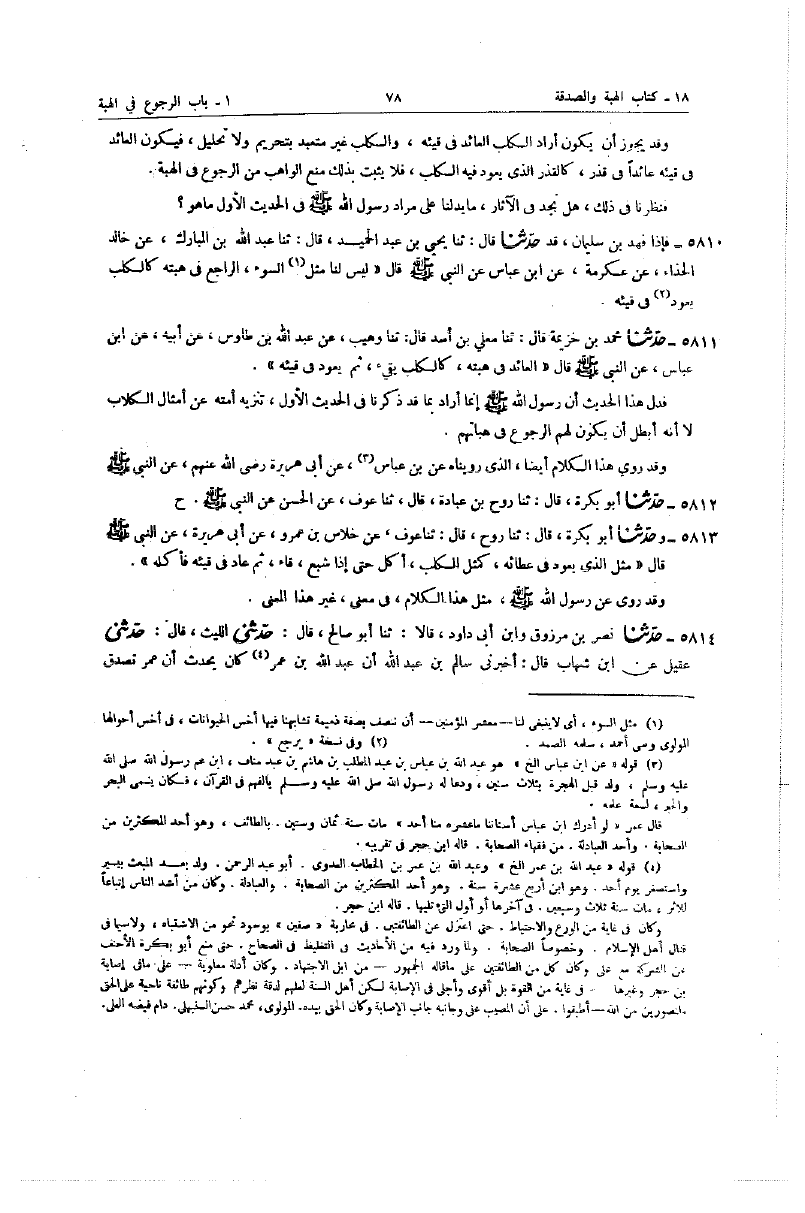 ١٨ - كتاب الهبة والصدقة ٧٨ ١ - باب الرجوع في الهبة
وقد يجوز أن يكون أراد الكلب العائد فى قيئه ، والكلب غير متعبد بتحريم ولا تحليل ، فيكون العائد
فى قيئه عائداً فى قذر ، كالقذر الذى يعود فيه الكلب ، فلا يثبت بذلك منع الواهب من الرجوع فى الهبة .
فنظرنا فى ذلك ، هل نجد فى الآثار ، مايدلنا على مراد رسول الله ﷺ فى الحديث الأول ماهو ؟
٥٨١٠ - فإذا فهد بن سليمان ، قد حدثنا قال : ثنا يحيى بن عبد الحميد ، قال : ثنا عبد الله بن المبارك ، عن خالد
الحذاء ، عن عكرمة ، عن ابن عباس عن النبي ﷺ قال « ليس لنا مثل(١) السوء ، الراجع فى هبته كالكلب
يعود(٢) فى قيئه .
٥٨١١ - حدثنا محمد بن خزيمة قال : ثنا معلى بن أسد قال : ثنا وهيب ، عن عبد الله بن طاوس ، عن أبيه ، عن ابن
عباس ، عن النبي ﷺ قال « العائد فى هبته ، كالكلب يقىء ، ثم يعود فى قيئه » .
فدل هذا الحديث أن رسول الله ﷺ إنما أراد بما قد ذكرنا فى الحديث الأول ، تنزيه أمته عن أمثال الكلاب
لا أنه أبطل أن يكون لهم الرجوع فى هباتهم .
وقد روي هذا الكلام أيضا ، الذى رويناه عن بن عباس(٣) ، عن أبى هريرة رضى الله عنهم ، عن النبي ﷺ
٥٨١٢ - حدثنا أبو بكرة ، قال : ثنا روح بن عبادة ، قال ، ثنا عوف ، عن الحسن عن النبي ﷺ . ح
٥٨١٣ - وحدثنا أبو بكرة ، قال : ثنا روح ، قال : ثنا عوف ، عن خلاس بن عمرو ، عن أبى هريرة ، عن النبي ﷺ
قال « مثل الذي يعود فى عطائه ، كمثل الكلب ، أكل حتى إذا شبع ، قاء ، ثم عاد فى قيئه فأكله » .
وقد روى عن رسول الله ﷺ ، مثل هذا الكلام ، فى معنى ، غير هذا المعنى .
٥٨١٤ - حدثنا نصر بن مرزوق وابن أبى داود ، قالا : ثنا أبو صالح ، قال : حدثنى الليث ، قال : حدثنى
عقيل عن ابن شهاب قال : أخبرنى سالم بن عبد الله أن عبد الله بن عمر(٤) كان يحدث أن عمر تصدق
(١) مثل السوء ، أى لاينبغى لنا — معشر المؤمنين — أن نتصف بصفة ذميمة تشابهنا فيها أخس الحيوانات ، فى أخس أحوالها
المولوى وصى أحمد ، سلمه الصمد . (٢) وفى نسخة « يرجع » .
(٣) قوله « عن ابن عباس الخ » هو عبد الله بن عباس بن عبد المطلب بن هاشم بن عبد مناف ، ابن عم رسول الله صلى الله
عليه وسلم ، ولد قبل الهجرة بثلاث سنين ، ودعا له رسول الله صلى الله عليه وسلم بالفهم فى القرآن ، فكان يسمى البحر
والحبر ، لسعة علمه .
قال عمر « لو أدرك ابن عباس أسناننا ماعشره منا أحد » مات سنة ثمان وستين . بالطائف ، وهو أحد المكثرين من
الصحابة . وأحد العبادلة . من فقهاء الصحابة . قاله ابن حجر فى تقريبه .
(٤) قوله « عبد الله بن عمر الخ » وعبد الله بن عمر بن الخطاب العدوى . أبو عبد الرحمن . ولد بعد المبعث بيسير
واستصغر يوم أحد . وهو ابن أربع عشرة سنة . وهو أحد المكثرين من الصحابة . والعبادلة . وكان من أشد الناس إتباعاً
للأثر ، مات سنة ثلاث وسبعين . فى آخرها أو أول التى تليها . قاله ابن حجر .
وكان فى غاية من الورع والاحتياط . حتى اعتزل عن الطائفتين . فى محاربة « صفين » بوجود نحو من الاشتباه ، ولاسيما فى
قتال أهل الإسلام . وخصوصاً الصحابة . ولما ورد فيه من الأحاديث فى التغليظ فى الصحاح . حتى منع أبو بكرة الأحنف
من الشركة مع على وكان كل من الطائفتين على ماقاله الجمهور — من ابل الاجتهاد . وكان أدلة معاوية — على مافى إصابة
بن حجر وغيرها - فى غاية من القوة بل أقوى وأجلى فى الإصابة لكن أهل السنة لعلهم لدقة نظرهم وكونهم طائفة ناحية على الحق
منصورين من الله — أطبقوا . على أن المصيب على وجانبه جانب الإصابة وكان الحق بيده . المولوى ، محمد حسن السنبهلى . دام فيضه العلى .